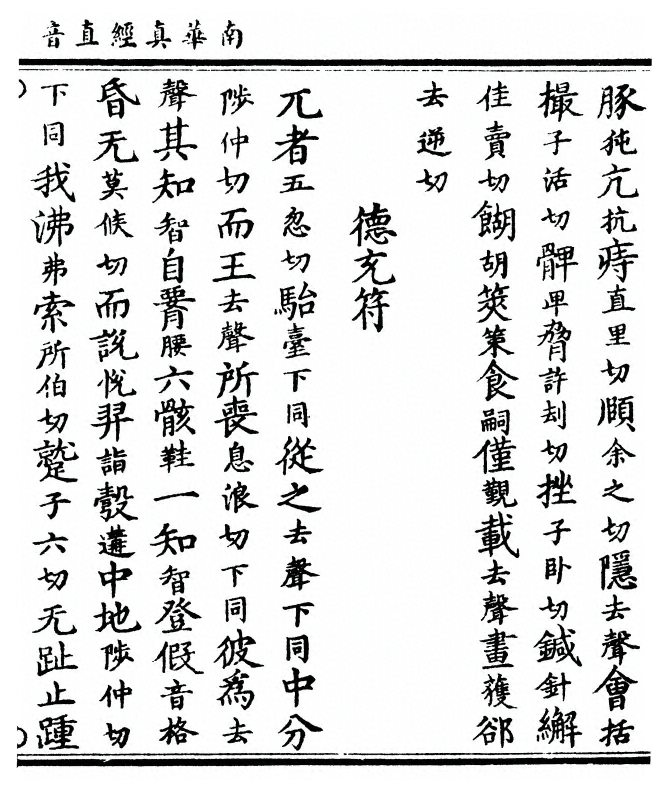 南華真經直音
豚㹠亢抗痔直里切頤余之切隱去聲會括
撮子活切髀甲脅許刦切挫子卧切鍼針繲
佳賣切餬胡筴策食嗣僅覲載去聲畫獲郤
去逆切
德充符
兀者五忽切駘臺下同從之去聲下同中分
陟仲切而王去聲所喪息浪切下同彼為去
聲其知智自䙅腰六骸鞋一知智登假音格
昏无莫候切而說悅羿詣彀遘中地陟仲切
下同我沸弗索所伯切蹵子六切无趾止踵